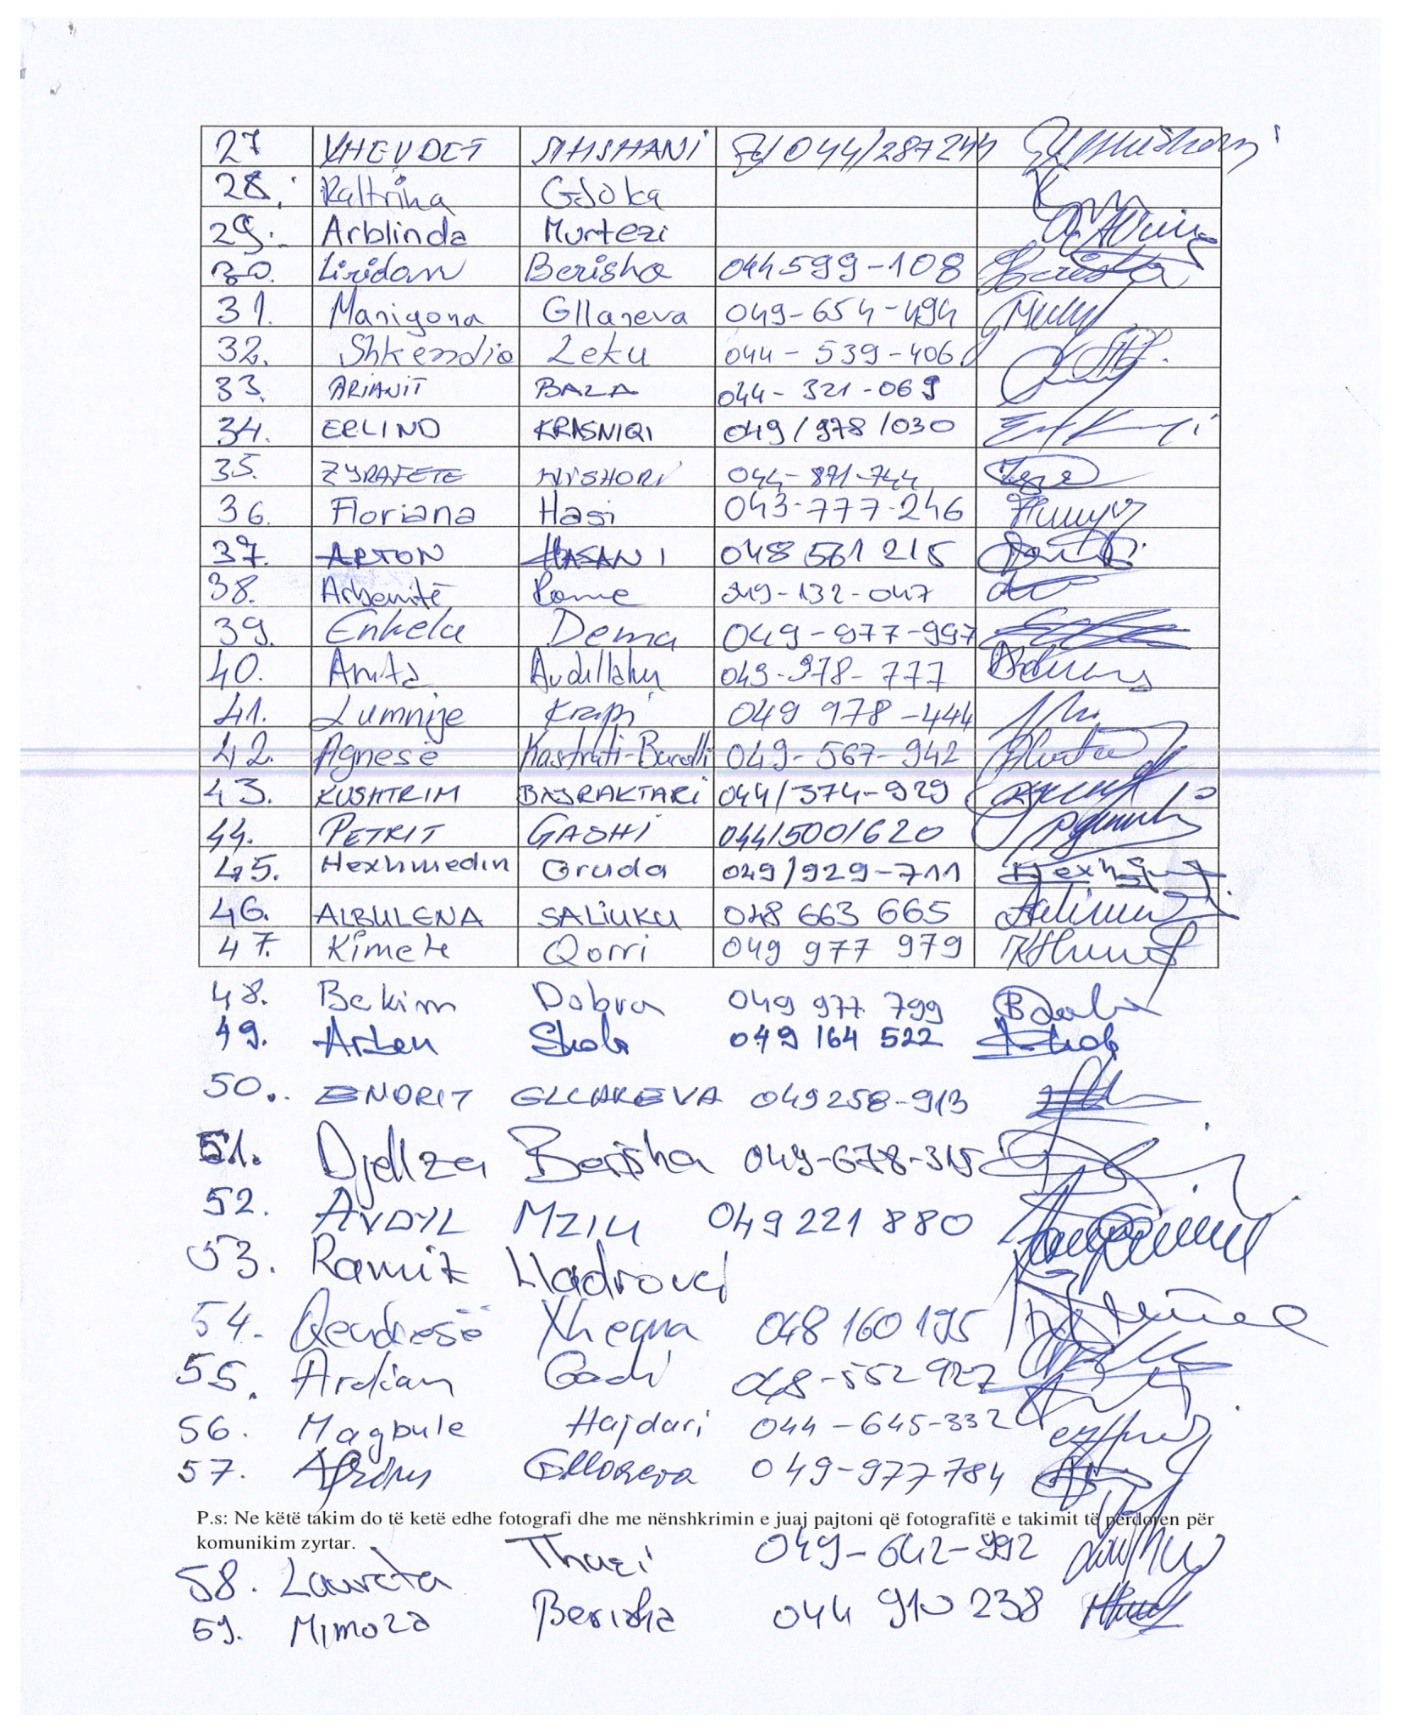 27 XHEVDET MUSHANI 044/287244
28. Kaltrina Gjoka
29. Arblinda Murtezi
30. Liridom Berisha 044599-108
31. Marigona Gllareva 049-654-494
32. Shkendie Zeku 044-539-406
33. ARIANIT BALA 044-321-069
34. ERLIND KRASNIQI 049/978/030
35. ZYRAFETE 044-871-744
36. Floriana Hasi 043-777-246
37. ARTON HASANI 048 561 215
38. Arbenitë Rame 049-132-047
39. Enkela Dema 049-977-997
40. Anita Avdillahu 049-978-777
41. Lumnije Krapi 049 978-444
42. Agnesë Kastrati-Buralli 049-567-942
43. KUSHTRIM BAJRAKTARI 044/374-929
44. PETRIT GASHI 044/500/620
45. Hexhmedin Gruda 049/929-711
46. ALBULENA SALIUKU 048 663 665
47. Kimete Qorri 049 977 979
48. Bekim Dobra 049 977 799
49. Arben 049 164 522
50.. ENORIT GLLAREVA 049258-913
51. Djellza Berisha 049-678-315
52. AVDYL MZIU 049 221 880
53. Ramiz Lladrovci
54. Qendresë Xhegna 048 160 195
55. Ardian Gashi 048-552 927
56. Magbule Hajdari 044-645-332
57. Gllareva 049-977784
P.s: Ne këtë takim do të ketë edhe fotografi dhe me nënshkrimin e juaj pajtoni që fotografitë e takimit të përdoren për
komunikim zyrtar.
58. Laureta Thaçi 049-642-992
59. Mimoza Berisha 044 910 238